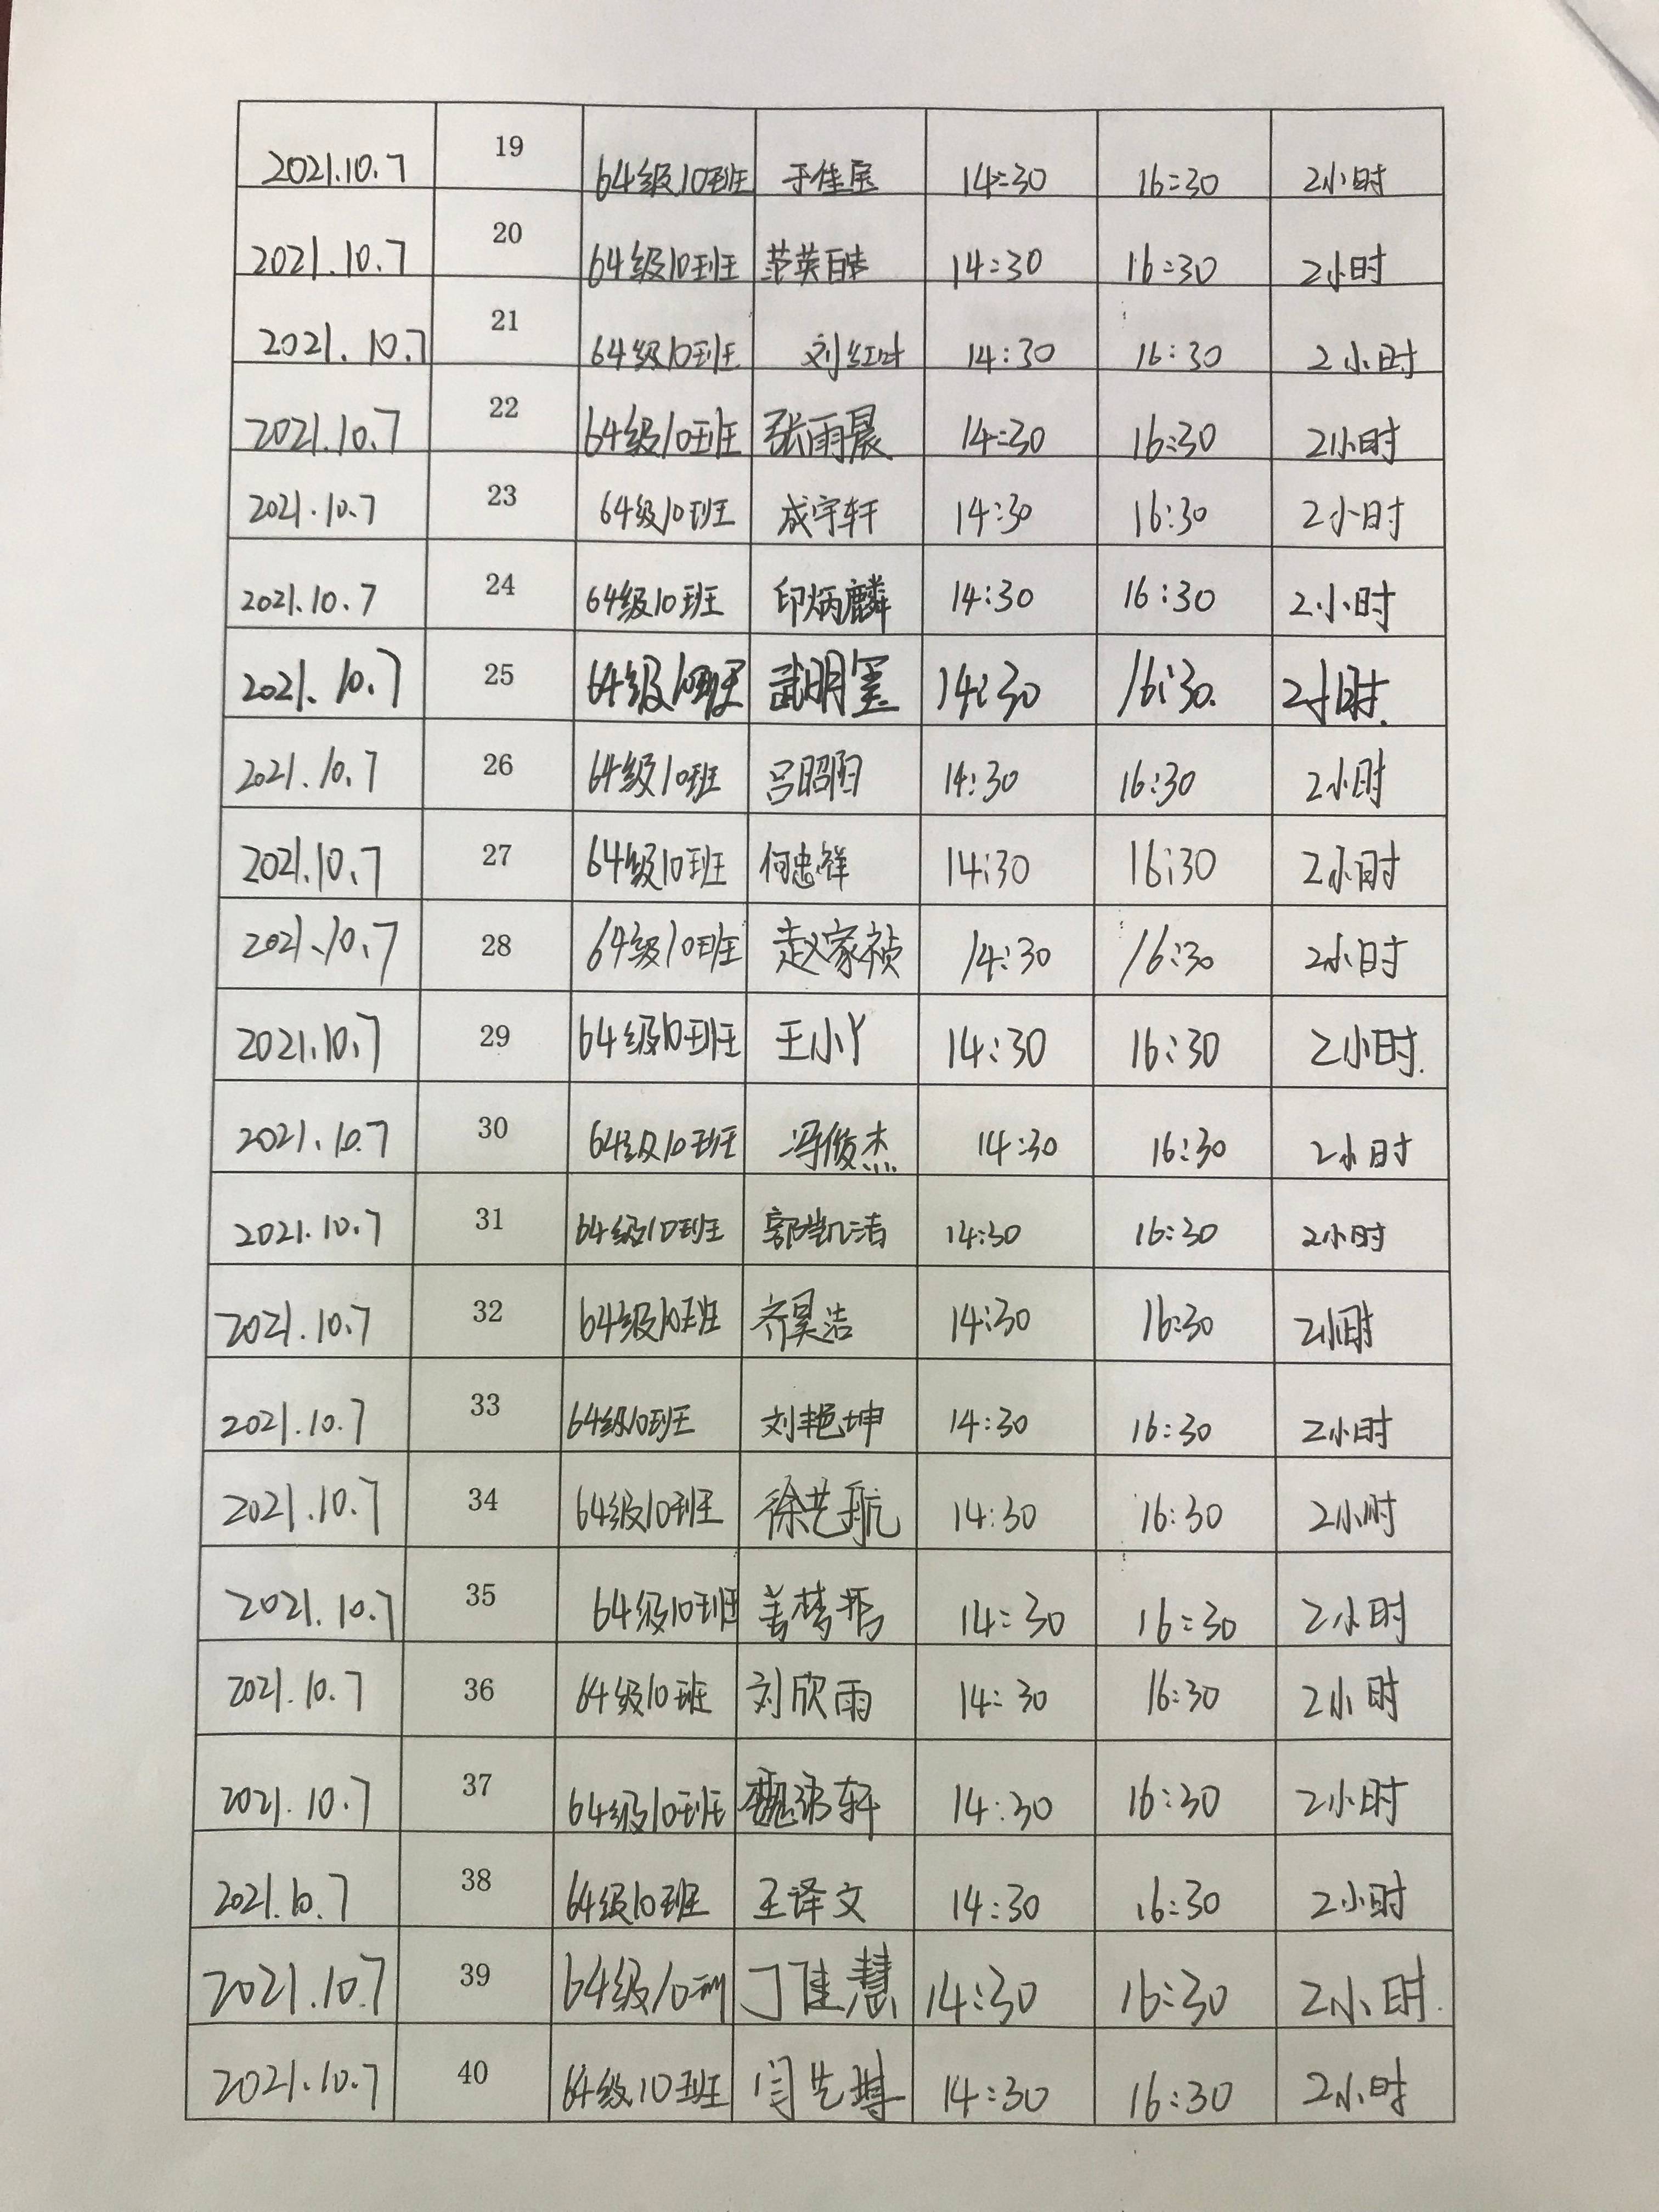 2021.10.7 19 64级10班 于佳宝 14:30 16:30 2小时
2021.10.7 20 64级10班 范英喆 14:30 16:30 2小时
2021.10.7 21 64级10班 刘红叶 14:30 16:30 2小时
2021.10.7 22 64级10班 张雨晨 14:30 16:30 2小时
2021.10.7 23 64级10班 成宇轩 14:30 16:30 2小时
2021.10.7 24 64级10班 印炳麟 14:30 16:30 2小时
2021.10.7 25 64级10班 武明 14:30 16:30. 2小时.
2021.10.7 26 64级10班 吕昭阳 14:30 16:30 2小时
2021.10.7 27 64级10班 何忠祥 14:30 16:30 2小时
2021.10.7 28 64级10班 赵家祯 14:30 16:30 2小时
2021.10.7 29 64级10班 王小丫 14:30 16:30 2小时.
2021.10.7 30 64级10班 冯俊杰 14:30 16:30 2小时
2021.10.7 31 64级10班 郭凯洁 14:30 16:30 2小时
2021.10.7 32 64级10班 齐昊浩 14:30 16:30 2小时
2021.10.7 33 64级10班 刘艳坤 14:30 16:30 2小时
2021.10.7 34 64级10班 徐艺航 14:30 16:30 2小时
2021.10.7 35 64级10班 14:30 16:30 2小时
2021.10.7 36 64级10班 刘欣雨 14:30 16:30 2小时
2021.10.7 37 64级10班 14:30 16:30 2小时
2021.10.7 38 64级10班 王译文 14:30 16:30 2小时
2021.10.7 39 64级10班 丁佳慧 14:30 16:30 2小时.
2021.10.7 40 64级10班 14:30 16:30 2小时